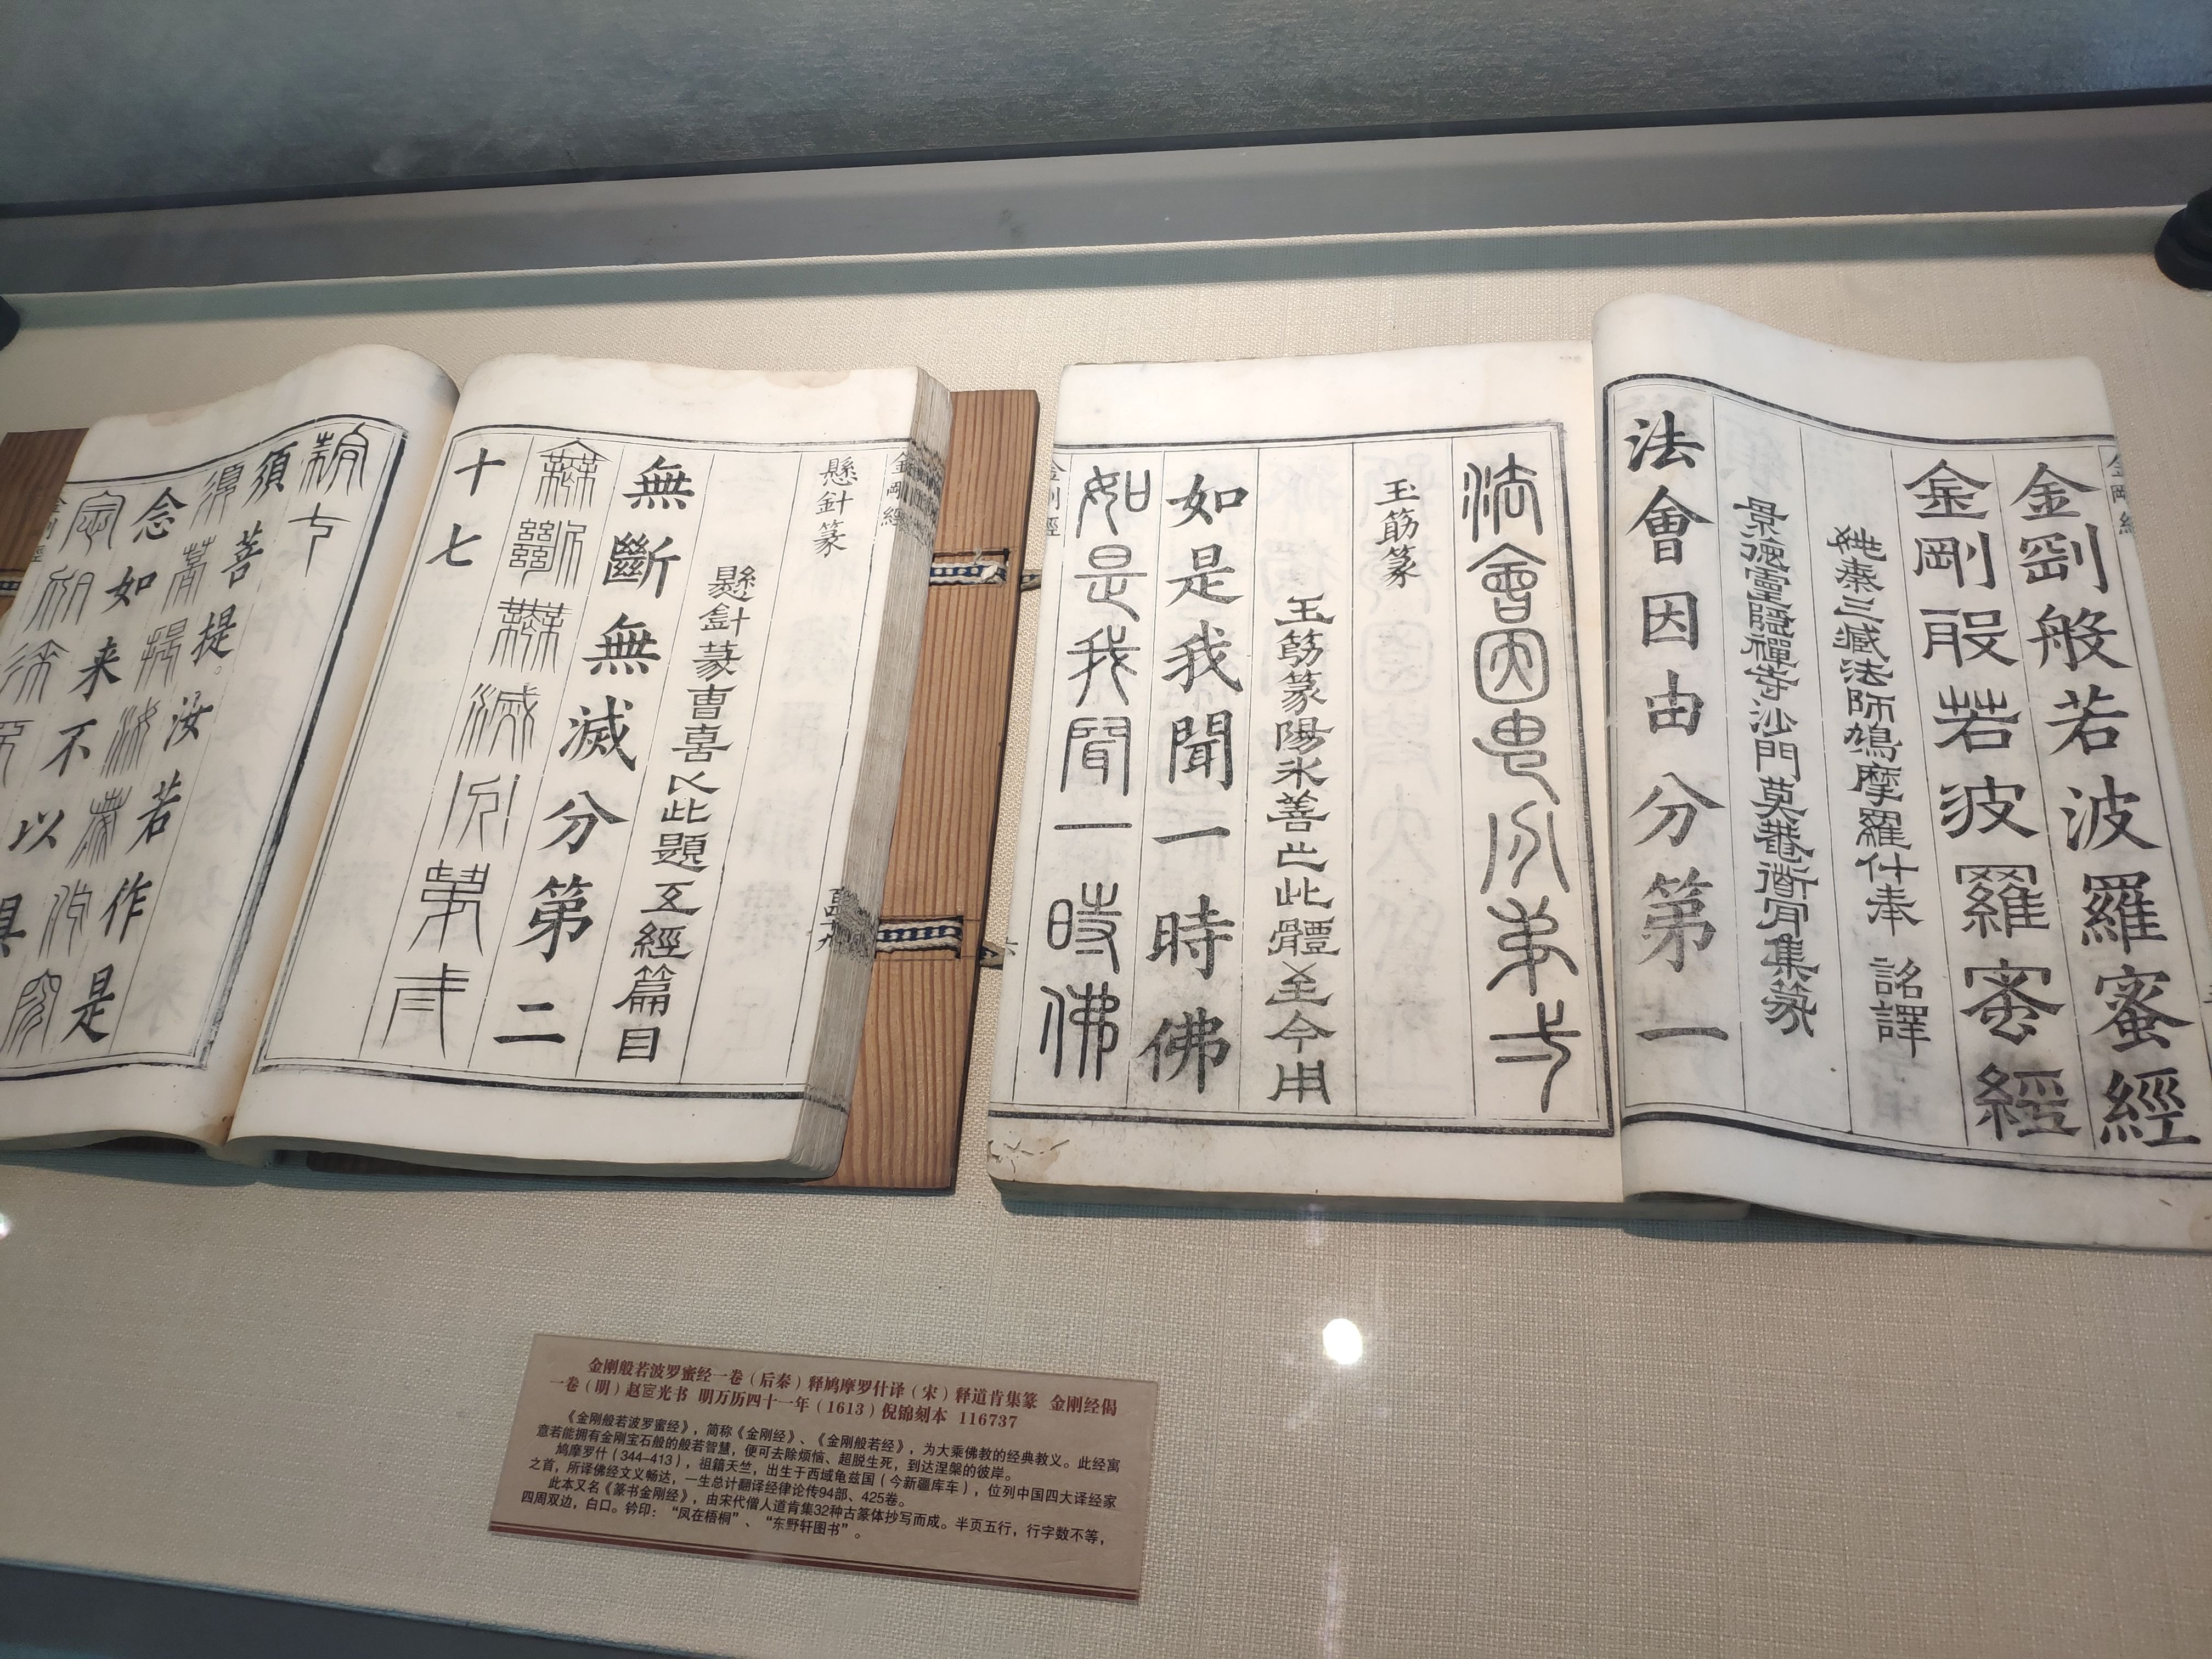 金剛般若波羅蜜經
金剛般若波羅蜜經
姚秦三藏法師鳩摩羅什奉 詔譯
景德靈隱禪寺沙門莫菴道肯集篆
法會因由分第一
法會因由分弟一
玉筯篆
玉筯篆陽冰善此體至今用
如是我聞一時佛
如是我聞一時佛
金剛經
金剛經
懸針篆
懸針篆曹喜氏此題五經篇目
無斷無滅分第二
無斷無滅分第二
十七
十七
須菩提。汝若作是
須菩提汝若作是
念如来不以具
念如來不以具
金剛經
金刚般若波罗蜜经一卷（后秦）释鸠摩罗什译（宋）释道肯集篆 金刚经偈
一卷（明）赵宧光书 明万历四十一年（1613）倪锦刻本 116737
《金刚般若波罗蜜经》，简称《金刚经》、《金刚般若经》，为大乘佛教的经典教义。此经寓
意若能拥有金刚宝石般的般若智慧，便可去除烦恼、超脱生死，到达涅槃的彼岸。
鸠摩罗什（344-413），祖籍天竺，出生于西域龟兹国（今新疆库车），位列中国四大译经家
之首，所译佛经文义畅达，一生总计翻译经律论传94部、425卷。
此本又名《篆书金刚经》，由宋代僧人道肯集32种古篆体抄写而成。半页五行，行字数不等，
四周双边，白口。钤印：“凤在梧桐”、“东野轩图书”。